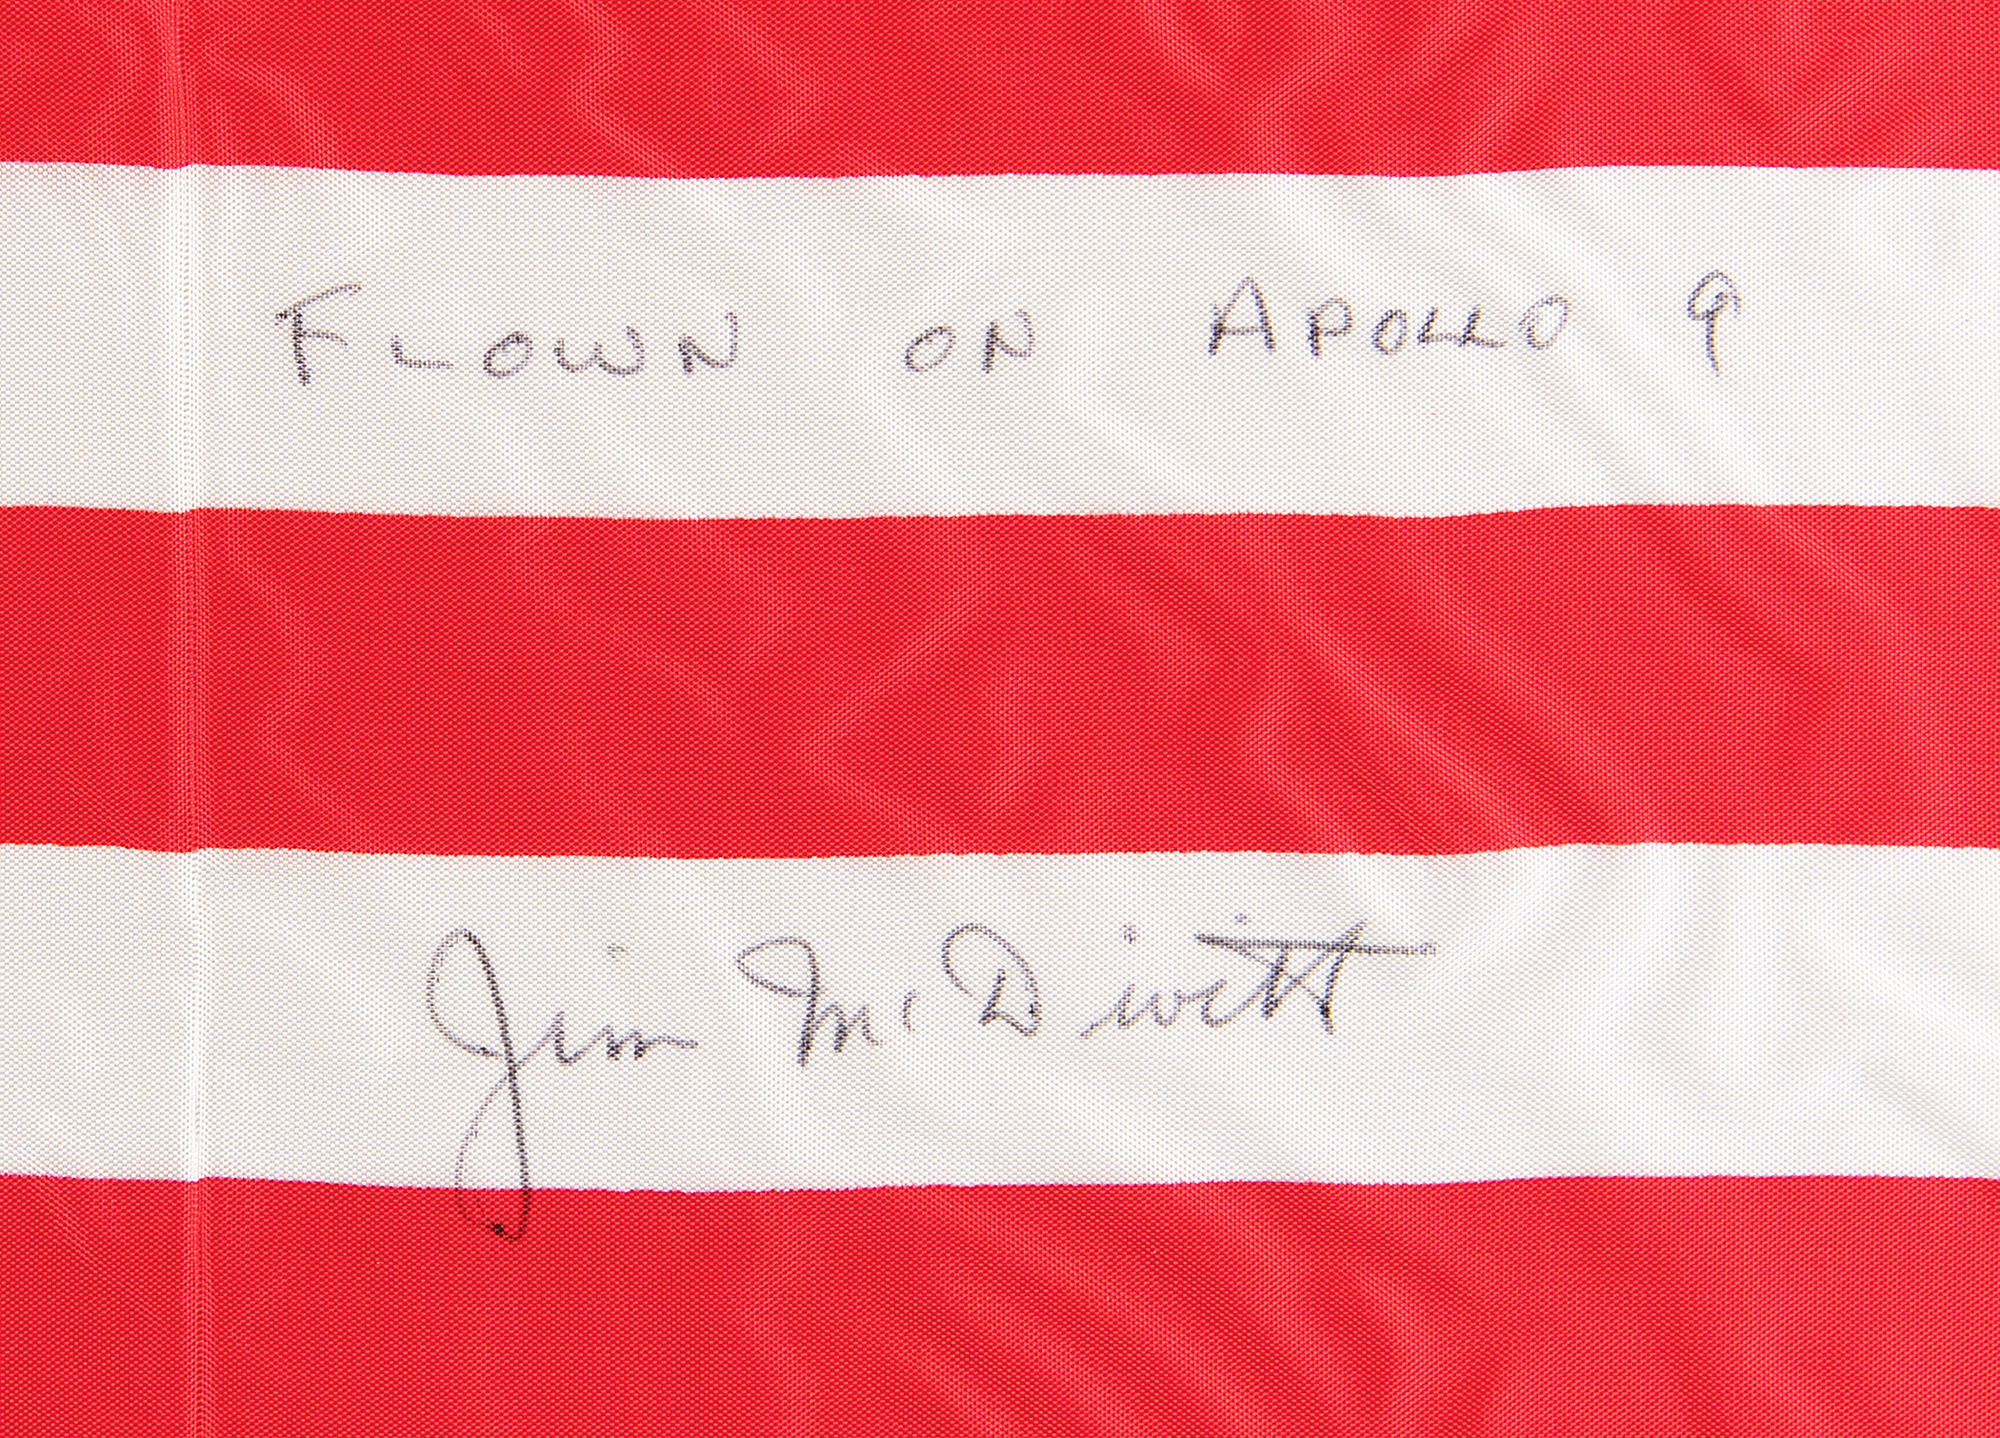 FLOWN ON APOLLO 9
Jim McDivitt